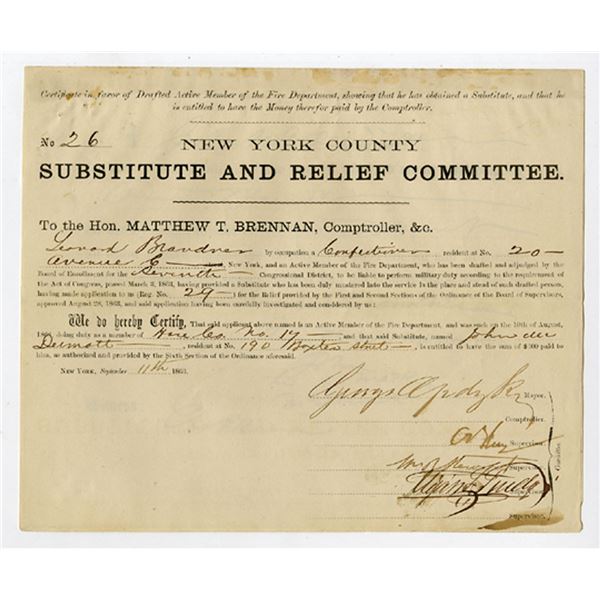 Certificate in favor of Drafted Active Member of the Fire Department, showing that he has obtained a Substitute, and that he
is entitled to have the Money therefor paid by the Comptroller.
No 26
NEW YORK COUNTY
SUBSTITUTE AND RELIEF COMMITTEE.
To the Hon. MATTHEW T. BRENNAN, Comptroller, &c.
Leonard Brandner by occupation a Confectioner resident at No. 20
Avenue C New York, and an Active Member of the Fire Department, who has been drafted and adjudged by the
Board of Enrollment for the Seventh Congressional District, to be liable to perform military duty according to the requirement of
the Act of Congress, passed March 3, 1863, having provided a Substitute who has been duly mustered into the service in the place and stead of such drafted person,
having made application to us (Reg. No. 29) for the Relief provided by the First and Second Sections of the Ordinance of the Board of Supervisors,
approved August 28, 1863, and said application having been carefully investigated and considered by us;
We do hereby Certify, That said applicant above named is an Active Member of the Fire Department, and was such on the 10th of August,
1863, doing duty as a member of Hose Co. No. 17 and that said Substitute, named John Mc
Dermott resident at No. 190 Baxter Street is entitled to have the sum of $300 paid to
him, as authorized and provided by the Sixth Section of the Ordinance aforesaid.
NEW YORK, September 11th 1863.
George Opdyke Mayor.
Comptroller.
Supervisor.
Supervisor.
Supervisor.
Supervisor.
Committee.